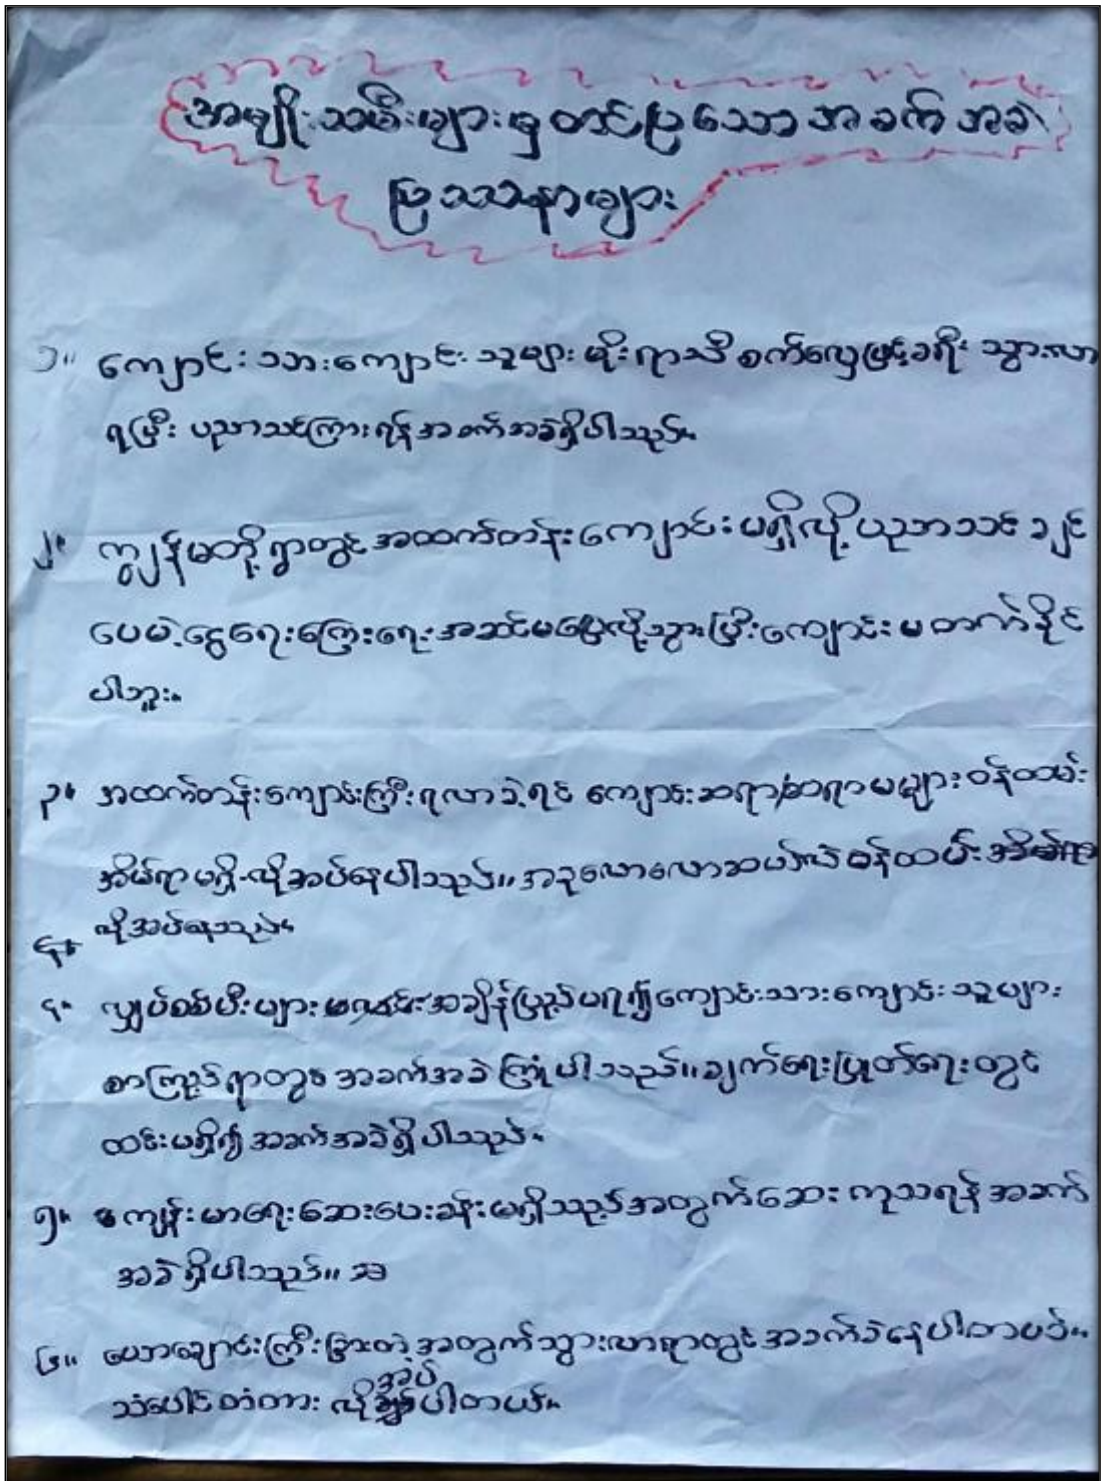 အမျိုးသမီးများမှ တင်ပြသော အခက် အခဲ
ပြဿနာများ
၁။ ကျောင်းသားကျောင်းသူများ မိုးရာသီ စက်လှေဖြင့်ခရီး သွားလာ
ရပြီး ပညာသင်ကြားရန် အခက်အခဲရှိပါသည်။
၂။ ကျွန်မတို့ရွာတွင် အထက်တန်းကျောင်းမရှိလို့ ပညာသင် ချင်
ပေမဲ့ ငွေရေးကြေးရေး အဆင်မပြေလို့သွားပြီးကျောင်းမတက်နိုင်
ပါဘူး။
၃။ အထက်တန်းကျောင်းကြီးရလာခဲ့ရင် ကျောင်းဆရာ/ဆရာမများ ဝန်ထမ်း
အိမ်ရာမရှိ-လိုအပ်နေပါသည်။ အခုလောလောဆယ်လဲ ဝန်ထမ်း အိမ်ရာ
လိုအပ်နေသည်။
၄။
၄။ လျှပ်စစ်မီးများ အချိန်ပြည့်မရ၍ ကျောင်းသားကျောင်းသူများ
စာကြည့်ရာတွင် အခက်အခဲ ကြုံပါသည်။ ချက်ရေးပြုတ်ရေးတွင်
ထင်းမရှိ၍ အခက်အခဲရှိပါသည်။
၅။ ကျန်းမာရေးဆေးပေးခန်းမရှိသည့်အတွက်ဆေး ကုသရန် အခက်
အခဲ ရှိပါသည်။ အ
၆။ ယောချောင်းကြီးခြားတဲ့အတွက်သွားလာရာတွင် အခက်ခဲနေပါတယ်။
သံပေါင်တံတား လိုအပ်ပါတယ်။